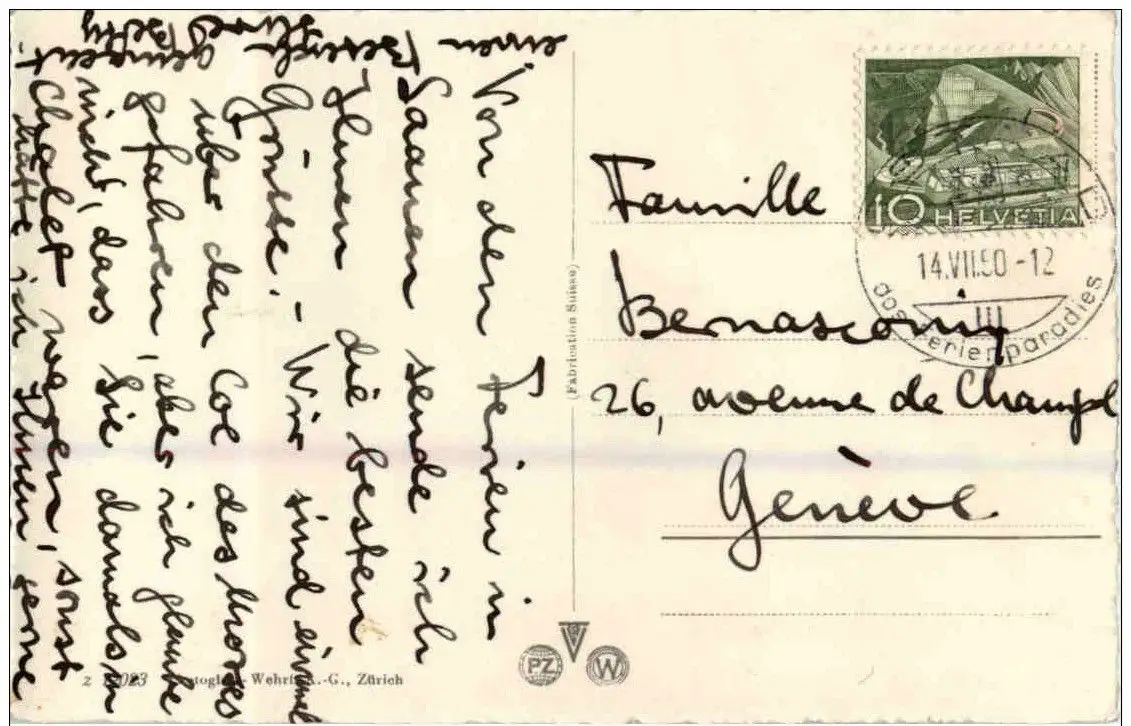 Von den Ferien in
Saanen sende ich
Ihnen die besten
Grüsse. - Wir sind einmal
über den Col des Mosses
gefahren, aber ich glaubte
nicht, dass Sie damals in
Chalet waren, sonst
hätte ich Ihnen gerne
einen Besuch gemacht.
Betty
Famille
Bernasconi
26, avenue de Champel
Genève
10 HELVETIA
14.VII.50-12
das Ferienparadies
(Fabrication Suisse)
PZ
W
Wehrli A.-G., Zürich